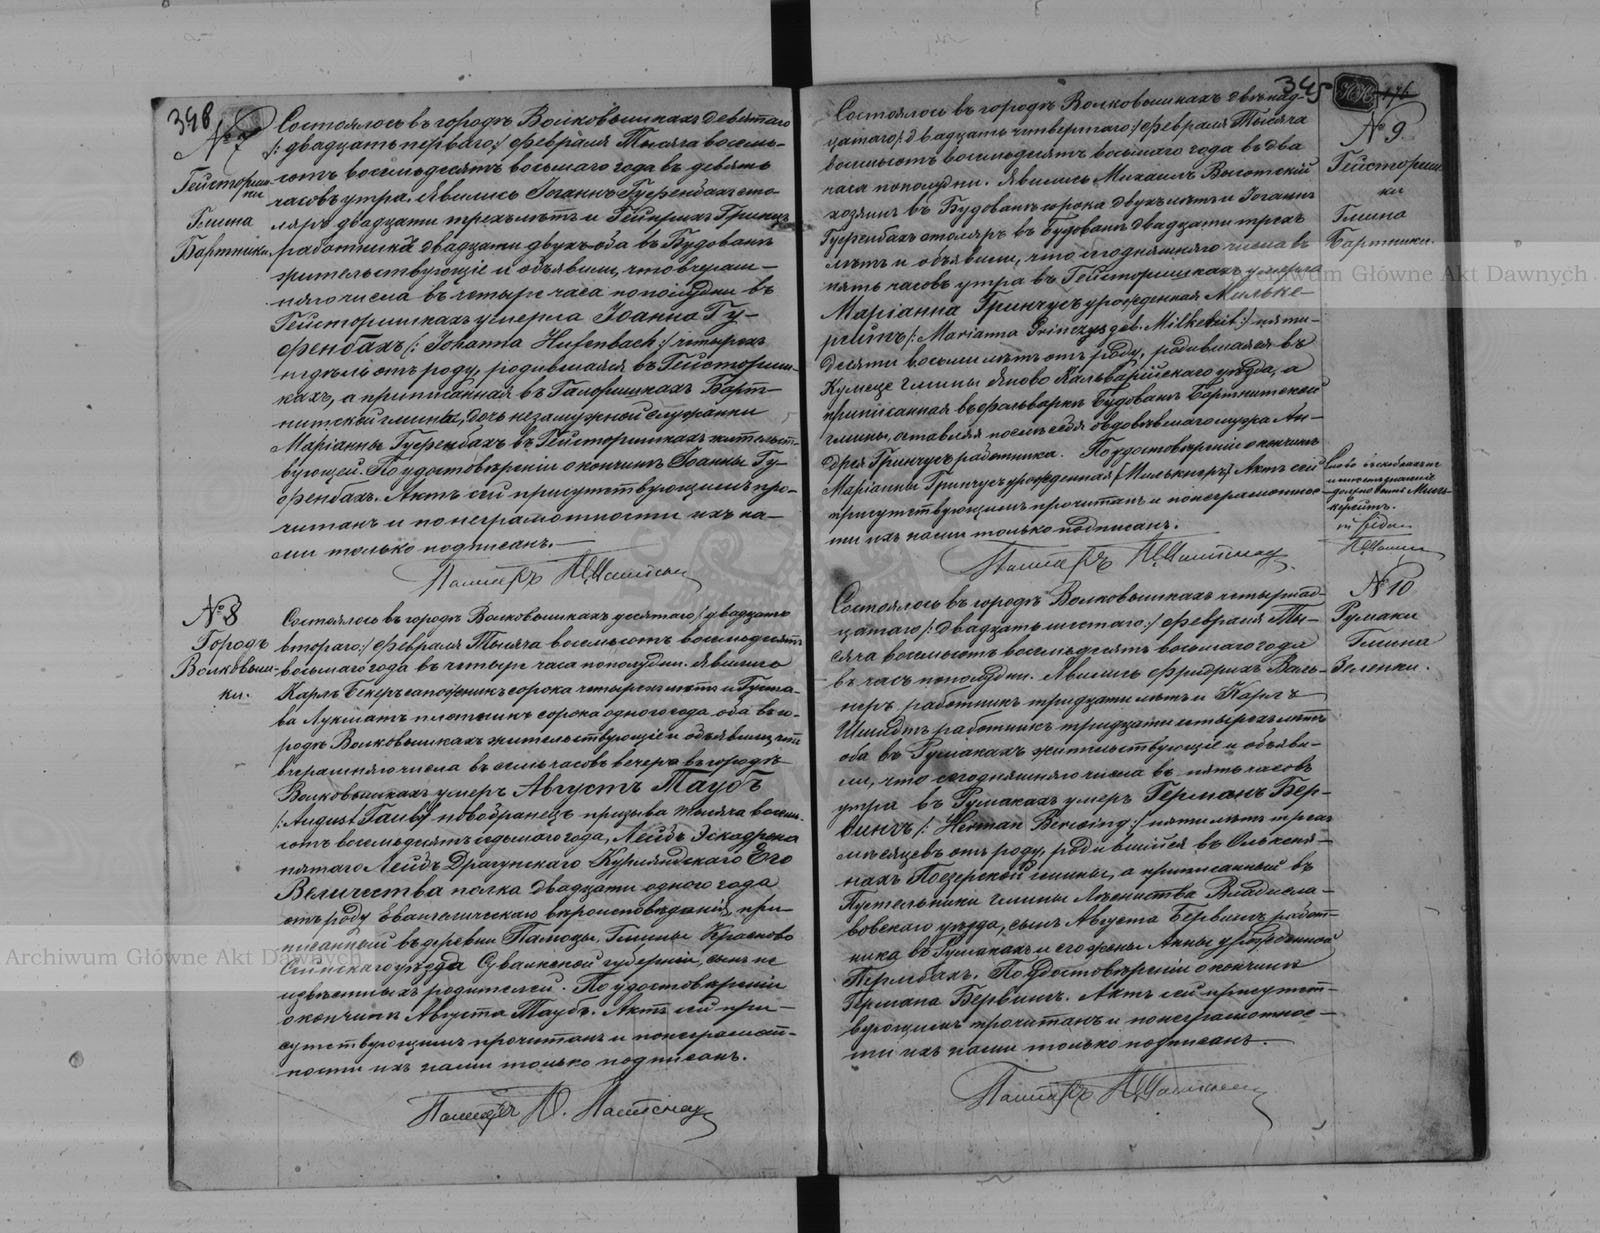 348
№ 7
Гейсториш-
ки
Гмина
Бартники.
Состоялось въ городѣ Волковышкахъ девятаго
/: двадцать перваго :/ февраля Тысяча восемь-
сотъ восемьдесятъ восьмаго года въ девять
часовъ утра. Явились Іоганъ Гуфенбахъ сто-
ляръ двадцати трехъ лѣтъ и Гейнрихъ
работникъ двадцати двухъ оба въ Будованѣ
жительствующіе и объявили, что вчераш-
няго числа въ четыре часа пополудни въ
Гейсторишкахъ умерла Іоанна Гу-
фенбахъ /: Johanna Hufenbach :/ четырехъ
недѣль отъ роду, родившаяся въ Гейсториш-
кахъ, а приписанная въ Бартни-
нитской гмины, дочь незамужной служанки
Маріанны Гуфенбахъ въ Гейсторишкахъ жительст-
вующей. По удостовѣреніи о кончинѣ Іоанны Гу-
фенбахъ. Актъ сей присутствующимъ про-
читанъ и по неграмотности ихъ на-
ми только подписанъ.
Пасторъ
№ 8
Городъ
Волковыш-
ки.
Состоялось въ городѣ Волковышкахъ десятаго /: двадцать
втораго :/ февраля Тысяча восемьсотъ восемьдесятъ
восьмаго года въ четыре часа пополудни. Явились
Карлъ Бекеръ сапожникъ сорока четырехъ лѣтъ и Густа-
ва Лукшатъ плотникъ сорока одного года оба въ го-
родѣ Волковышкахъ жительствующіе и объявили, что
вчерашняго числа въ семь часовъ вечера въ городѣ
Волковышкахъ умеръ Августъ Таубъ
/: August Taub :/ новобранецъ призыва тысяча восемь-
сотъ восемьдесятъ седьмого года, Лейбъ Эскадрона
пятаго Лейбъ Драгунскаго Курляндскаго Его
Величества полка двадцати одного года
отъ роду Евангелическаго вѣроисповѣданія, при-
писанный въ деревни Гмины Красново
Сейнскаго уѣзда Сувалкской губерніи, сынъ не
извѣстныхъ родителей. По удостовѣреніи
о кончинѣ Августа Таубъ. Актъ сей при-
сутствующимъ прочитанъ и по неграмот-
ности ихъ нами только подписанъ.
Пасторъ
345
176
№ 9
Гейсториш-
ки
Гмина
Бартники.
Состоялось въ городѣ Волковышкахъ двѣнад-
цатаго /: двадцать четвертаго :/ февраля Тысяча
восемьсотъ восемьдесятъ восьмаго года въ два
часа пополудни. Явились Михаилъ Высотскій
хозяинъ въ Будованѣ сорока двухъ лѣтъ и Іоганъ
Гуфенбахъ столяръ въ Будованѣ двадцати трехъ
лѣтъ и объявили, что сегодняшняго числа въ
пять часовъ утра въ Гейсторишкахъ умерла
Маріанна Гринчусъ урожденная Мильке-
рейтъ /: Marianna Grinczus geb. Milkereit :/ пяти-
десяти восьми лѣтъ отъ роду, родившаяся въ
гмины Яново Кальварійскаго уѣзда, а
приписанная въ фольваркѣ Будованѣ Бартнитской
гмины, оставляя послѣ себя овдовѣвшаго мужа Ан-
дрея Гринчусъ работника. По удостовѣреніи о кончинѣ
Маріанны Гринчусъ урожденная Актъ сей
присутствующимъ прочитанъ и по неграмотнос-
ти ихъ нами только подписанъ.
Пасторъ
№ 10
Румаки
Гмина
Зеленки.
Состоялось въ городѣ Волковышкахъ четырнад-
цатаго /: двадцать шестаго :/ февраля Ты-
сяча восемьсотъ восемьдесятъ восьмаго года
въ часъ пополудни. Явились Фридрихъ Валь-
неръ работникъ тридцати лѣтъ и Карлъ
Шмидтъ работникъ тридцати четырехъ лѣтъ
оба въ Румакахъ жительствующіе и объяви-
ли, что сегодняшняго числа въ пять часовъ
утра въ Румакахъ умеръ Германъ Бер-
вингъ /: Herman Berwing :/ пяти лѣтъ трехъ
мѣсяцевъ отъ роду, родившійся въ Олькси-
нахъ Поезерской гмины, а приписанный въ
Пустельники гмины Лѣсництва Владисла-
вовскаго уѣзда, сынъ Августа Бервингъ работ-
ника въ Румакахъ и его жены Анны урожденной
Перлбахъ. По удостовѣреніи о кончинѣ
Германа Бервингъ. Актъ сей присутст-
вующимъ прочитанъ и по неграмотнос-
ти ихъ нами только подписанъ.
Пасторъ
Archiwum Główne Akt Dawnych
Archiwum Główne Akt Dawnych